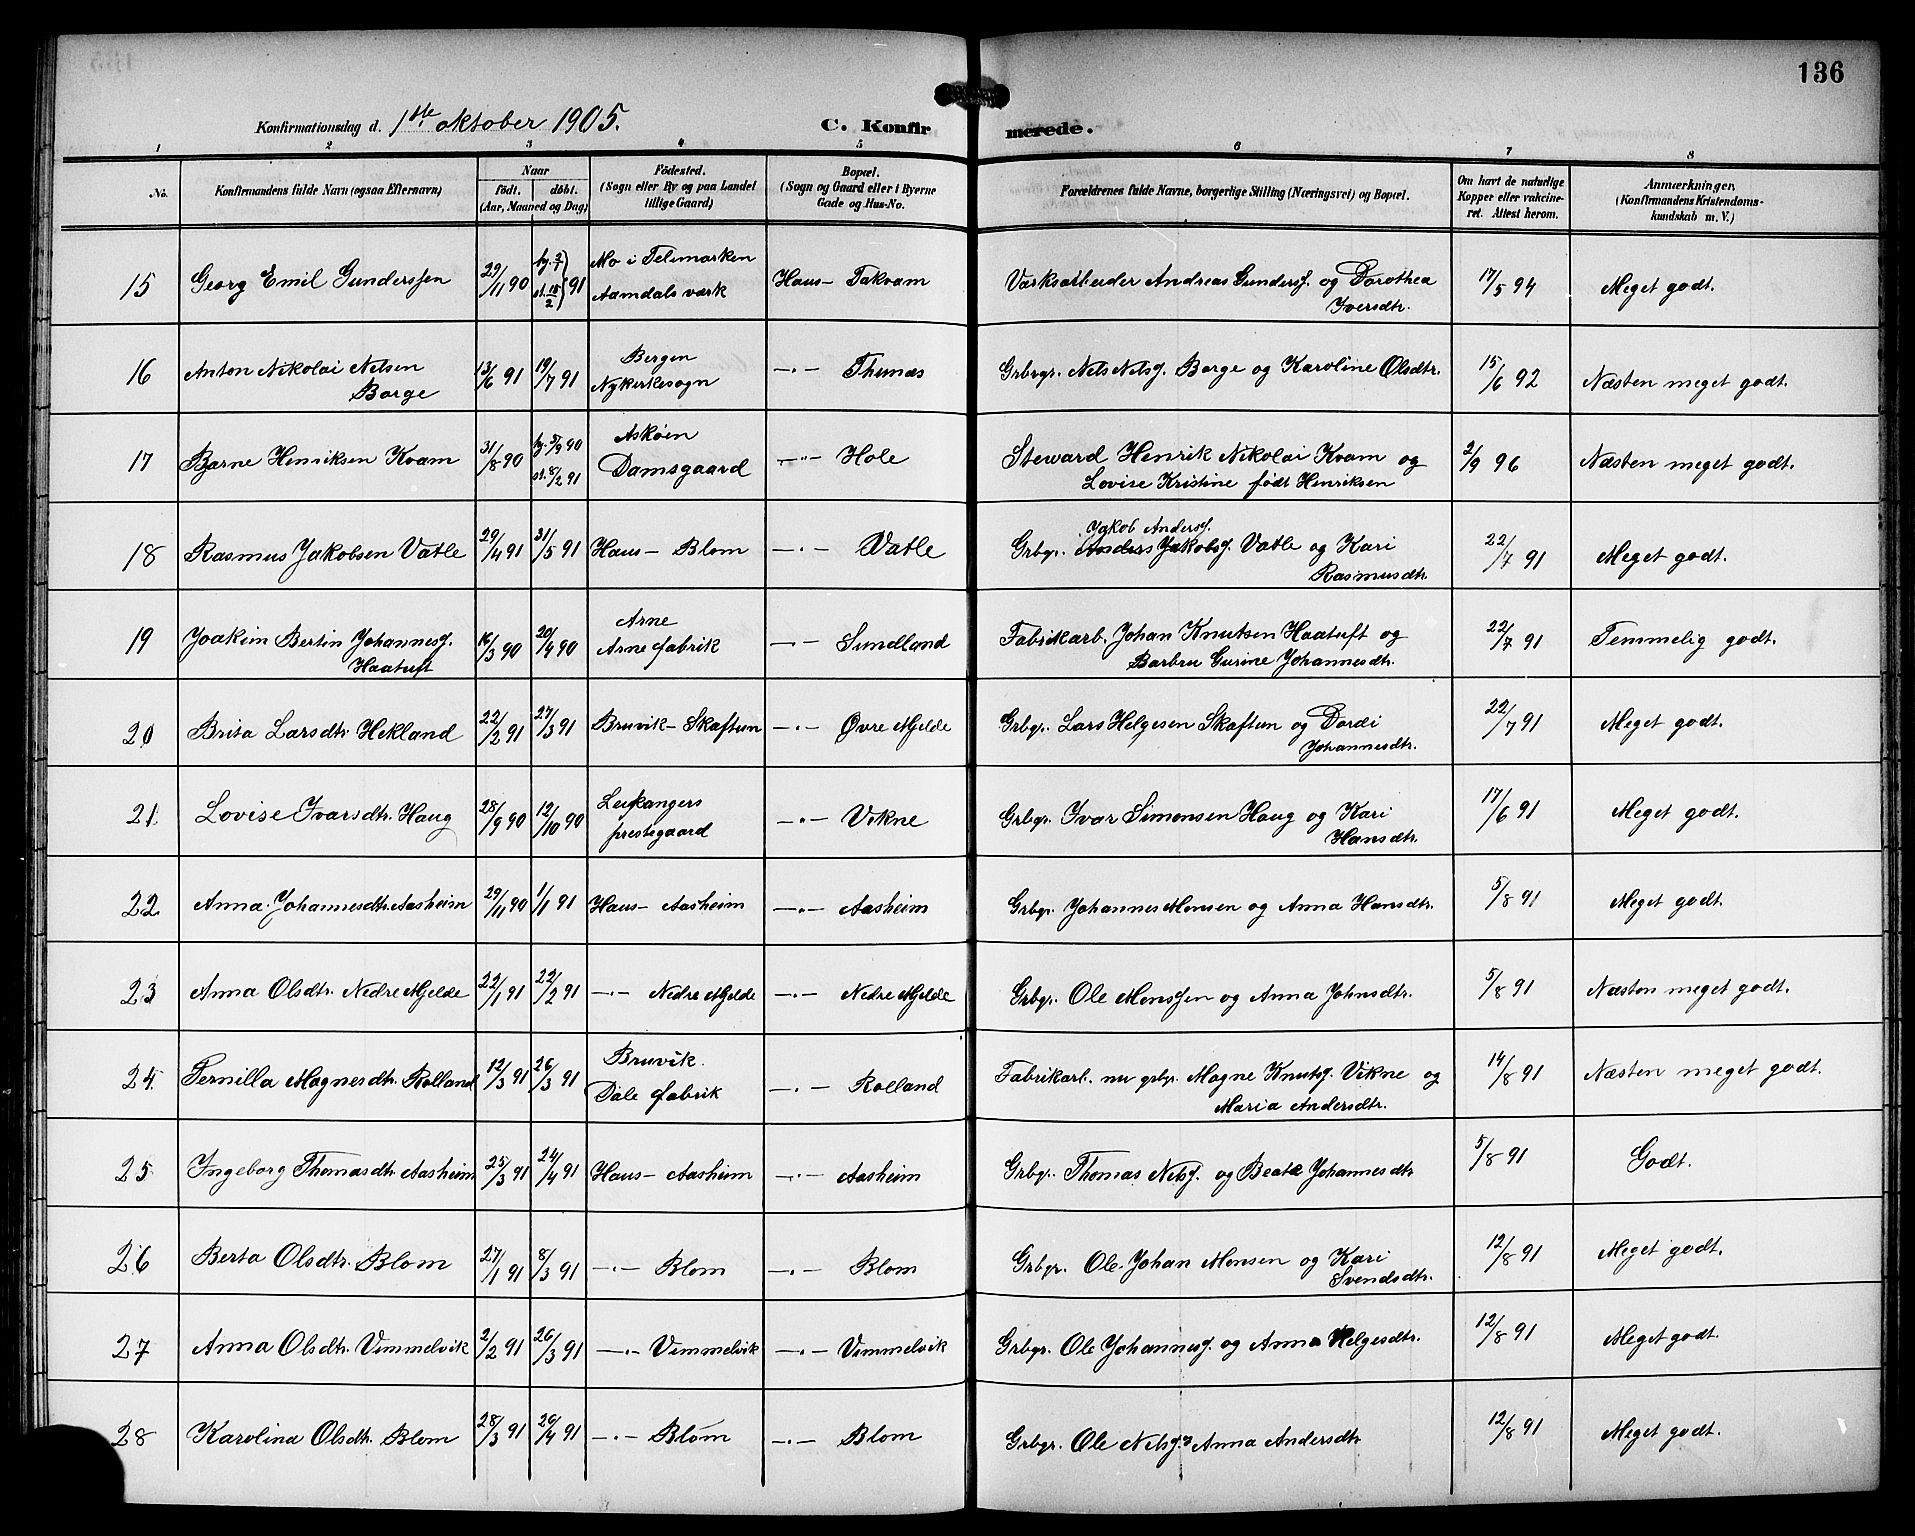 136
Konfirmationsdag d. 1ste oktober 1905. C. Konfirmerede.
1 2 3 4 5 6 7 8
No. Konfirmandens fulde Navn (ogsaa Efternavn) Naar født. døbt. (Aar, Maaned og Dag) Födested. (Sogn eller By og paa Landet tillige Gaard) Bopæl. (Sogn og Gaard eller i Byerne Gade og Hus-No. Forældrenes fulde Navne, borgerlige Stilling (Næringsvei) og Bopæl. Om havt de naturlige Kopper eller vakcineret. Attest herom. Anmærkninger, (Konfirmandens Kristendomskundskab m. V.)
15 Georg Emil Gunderssen 29/11 90 hj. 3/1 st. 15/2 } 91 Mo i Telemarken Aamdals værk Haus - Takvam Værksarbeider Andreas Gunders. og Dorothea Iversdtr. 17/5 94 Meget godt.
16 Anton Nikolai Nilsen Borge 13/6 91 19/7 91 Bergen Nykirkesogn -"- Thunæs Grbrgr. Nils Nils. Borge og Karoline Olsdtr. 15/6 92 Næsten meget godt.
17 Bjarne Henriksen Kvam 31/8 90 hj. 3/9 90 st. 8/2 91 Askøen Damsgaard -"- Hole Steward Henrik Nikolai Kvam og Lovise Kristine født Henriksen 2/9 96 Næsten meget godt.
18 Rasmus Jakobsen Vatle 29/4 91 31/5 91 Haus - Blom -"- Vatle Grbgr. Jakob Anders. Anders Jakobs. Vatle og Kari Rasmusdtr. 22/7 91 Meget godt.
19 Joakim Bertin Johannes. Haatuft 16/3 90 20/4 90 Arne Arne fabrik -"- Sundland Fabrikarb. Johan Knutsen Haatuft og Barbru Gurine Johannesdtr. 22/7 91 Temmelig godt.
20 Brita Larsdtr. Hekland 22/2 91 27/3 91 Bruvik - Skaftun -"- Øvre Mjelde Grbgr. Lars Helgesen Skaftun og Dordi Johannesdtr. 22/7 91 Meget godt.
21. Lovise Ivarsdtr. Haug 28/9 90 12/10 90 Leikangers prestegaard -"- Vikne Grbgr. Ivar Simonsen Haug og Kari Hansdtr. 17/6 91 Meget godt.
22 Anna Johannesdtr. Aasheim 29/11 90 1/1 91 Haus - Aasheim -"- Aasheim Grbgr. Johannes Monsen og Anna Hansdtr. 5/8 91 Meget godt.
23 Anna Olsdtr. Nedre Mjelde 22/1 91 22/2 91 -"- Nedre Mjelde -"- Nedre Mjelde Grbgr. Ole Monssen og Anna Johnsdtr. 5/8 91 Næsten meget godt.
24. Pernilla Magnesdtr. Rolland 12/3 91 26/3 91 Bruvik. Dale fabrik -"- Rolland Fabrikarb. nu grbgr. Magne Knuts. Vikne og Maria Andersdtr. 14/8 91 Næsten meget godt.
25 Ingeborg Thomasdtr. Aasheim 25/3 91 24/4 91 Haus - Aasheim -"- Aasheim Grbgr. Thomas Nils. og Beate Johannesdtr 5/8 91 Godt.
26 Berta Olsdtr. Blom 27/1 91 8/3 91 -"- Blom -"- Blom Grbgr. Ole Johan Monsen og Kari Svendsdtr. 12/8 91 Meget godt.
27 Anna Olsdtr. Vimmelvik 2/2 91 26/3 91 -"- Vimmelvik -"- Vimmelvik Grbgr. Ole Johannes. og Anna Helgesdtr. 12/8 91 Meget godt.
28 Karolina Olsdtr. Blom 28/3 91 26/4 91 -"- Blom -"- Blom Grbgr. Ole Nils. & Anna Andersdtr 12/8 91 Meget godt.